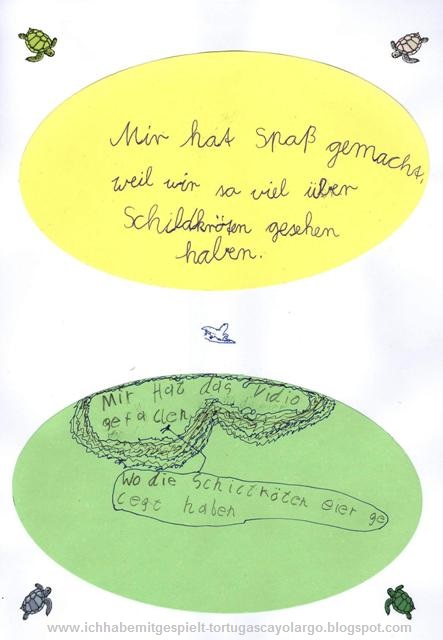 Mir hat Spaß gemacht,
weil wir so viel über
Schildkröten gesehen
haben.
Mir Hat das Vidio
gefallen
Wo die Schictkröten eier ge
legt haben
www.ichhabemitgespielt-tortugascayolargo.blogspot.com